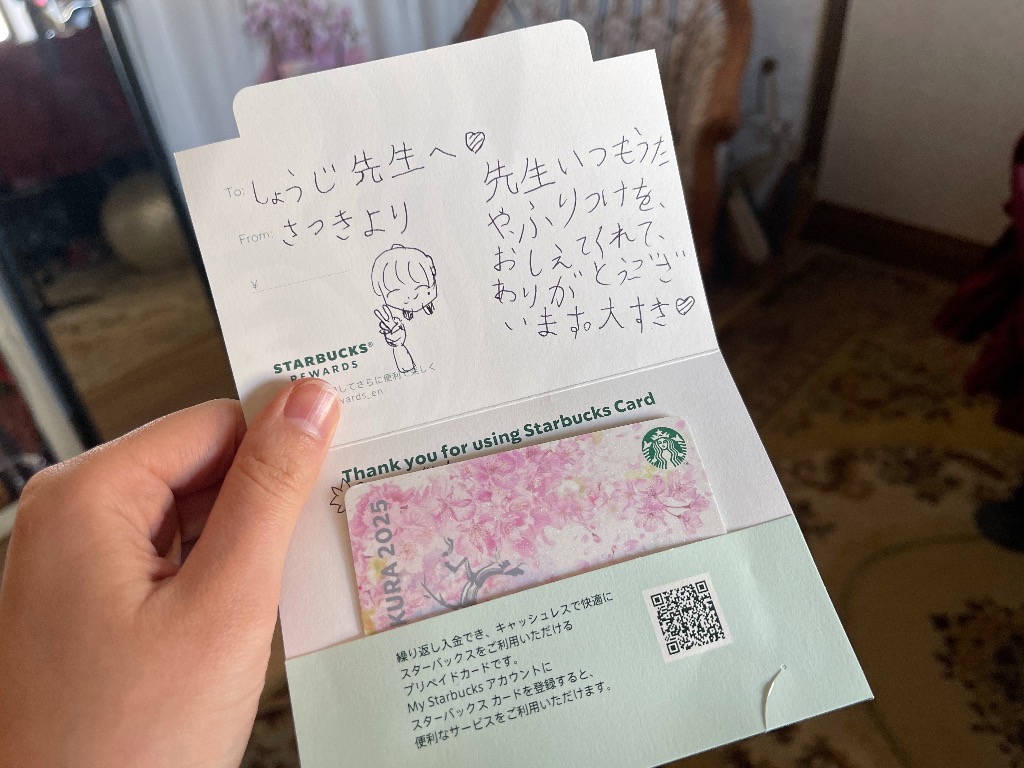 To: しょうじ先生へ♡
From: さつきより
¥
先生いつもうた
や、ふりつけを、
おしえてくれて、
ありがとうござ
います。大すき♡
STARBUCKS®
REWARDS
してさらに便利で楽しく
wards_en
Thank you for using Starbucks Card
KURA 2025
繰り返し入金でき、キャッシュレスで快適に
スターバックスをご利用いただける
プリペイドカードです。
My Starbucks アカウントに
スターバックス カードを登録すると、
便利なサービスをご利用いただけます。